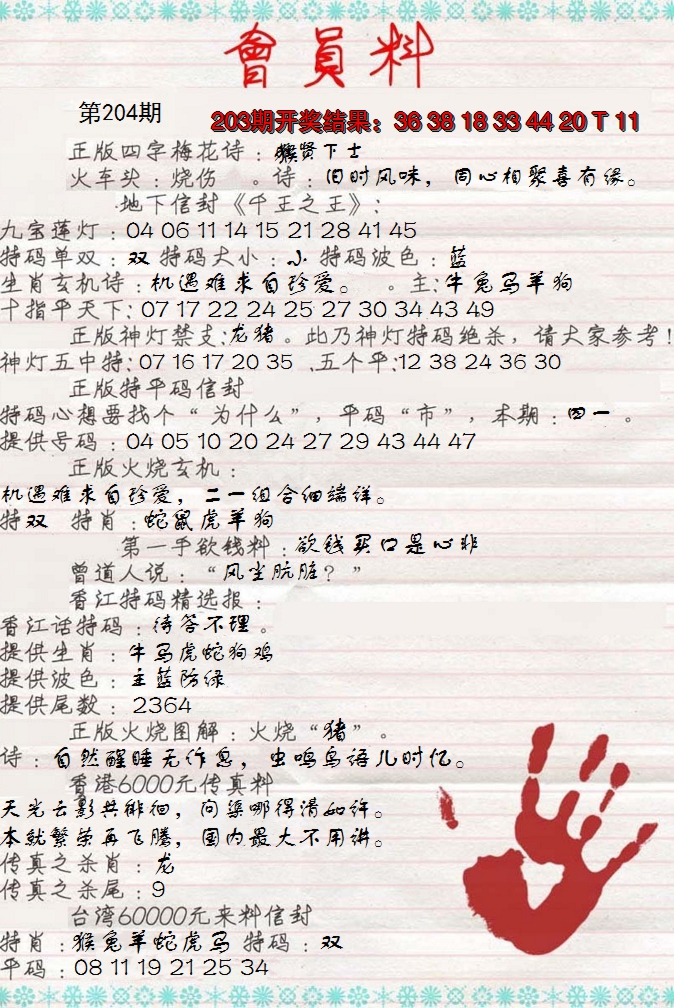 會員料
第204期
203期开奖结果：36 38 18 33 44 20 T 11
正版四字梅花诗：猴贤下士
火车头：烧伤 。诗：旧时风味，同心相聚喜有缘。
地下信封《千王之王》：
九宝莲灯：04 06 11 14 15 21 28 41 45
特码单双：双 特码大小：小 特码波色：蓝
生肖玄机诗：机遇难求自珍爱。 。主：牛兔马羊狗
十指平天下：07 17 22 24 25 27 30 34 43 49
正版神灯禁支：龙猪。此乃神灯特码绝杀，请大家参考！
神灯五中特：07 16 17 20 35 .五个平：12 38 24 36 30
正版特平码信封
特码心想要找个“为什么”，平码“市”，本期：四一 。
提供号码：04 05 10 20 24 27 29 43 44 47
正版火烧玄机：
机遇难求自珍爱，二一组合细端详。
特双 特肖：蛇鼠虎羊狗
第一手欲钱料：欲钱买口是心非
曾道人说：“风尘肮脏？”
香江特码精选报：
香江话特码：待答不理。
提供生肖：牛马虎蛇狗鸡
提供波色：主蓝防绿
提供尾数：2364
正版火烧图解：火烧“猪”。
诗：自然醒睡无作息，虫鸣鸟语儿时忆。
香港6000元传真料
天光云影共徘徊，问渠哪得清如许。
本就繁荣再飞腾，国内最大不用讲。
传真之杀肖：龙
传真之杀尾：9
台湾60000元来料信封
特肖：猴兔羊蛇虎马 特码：双
平码：08 11 19 21 25 34